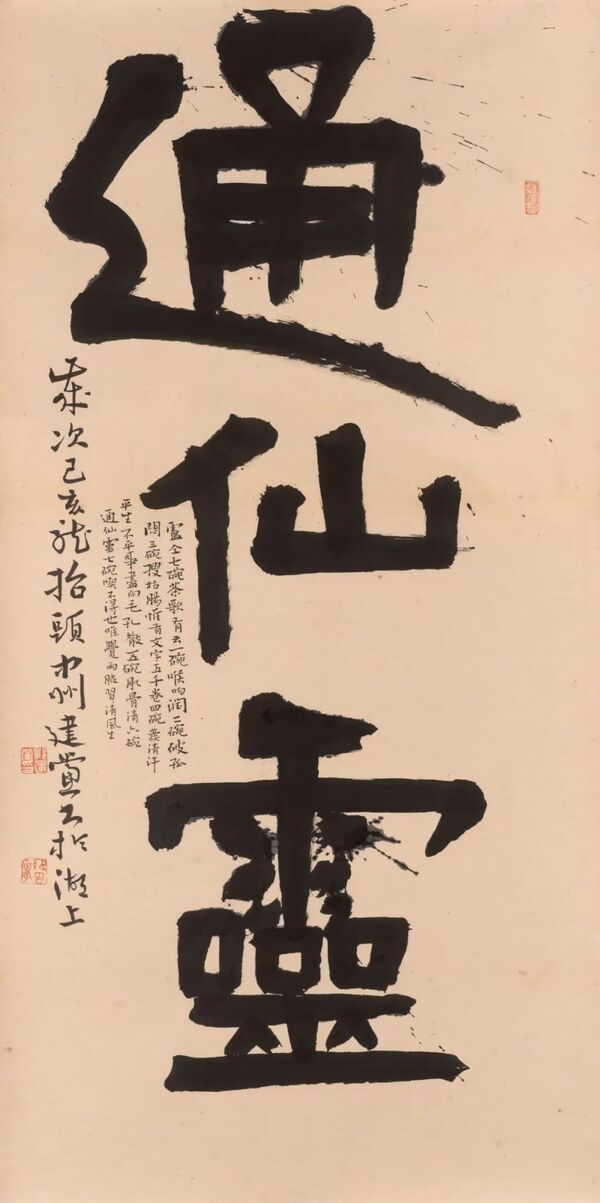 通仙靈
盧仝七碗茶歌有云一碗喉吻潤二碗破孤
悶三碗搜枯腸惟有文字五千卷四碗發清汗
平生不平事盡向毛孔散五碗肌骨清六碗
通仙靈七碗喫不得也唯覺兩腋習清風生
歲次己亥龍抬頭中州建黨書於湖上